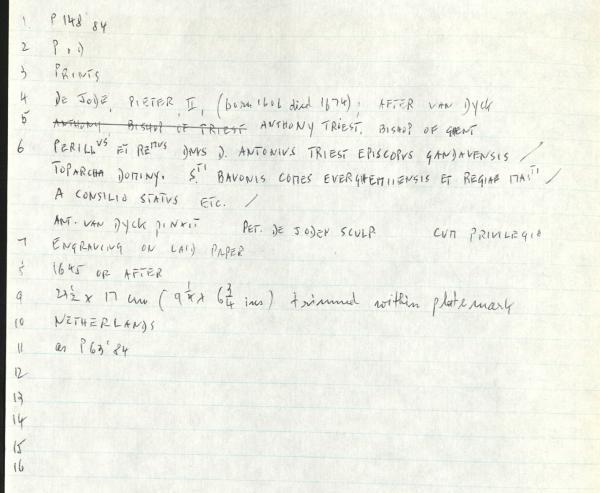 1 P 148'84
2 P.D
3 PRINTS
4 DE JODE, PIETER II, (born 1606 died 1674); AFTER VAN DYCK
5 ANTHONY, BISHOP OF TRIEST ANTHONY TRIEST, BISHOP OF GHENT
6 PERILLVS ET REMVS DNVS D. ANTONIVS TRIEST EPISCOPVS GANDAVENSIS /
TOPARCHA DOMINY. S.TI BAVONIS COMES EVERGHEMIENSIS ET REGIAE MAITI /
A CONSILIO STATVS ETC. /
ANT. VAN DYCK PINXIT PET. DE JODEN SCULP CVM PRIVILEGIO
7 ENGRAVING ON LAID PAPER
8 1645 OR AFTER
9 23½ x 17 cm (9¼ x 6¾ ins) trimmed within platemark
10 NETHERLANDS
11 as P63'84
12
13
14
15
16